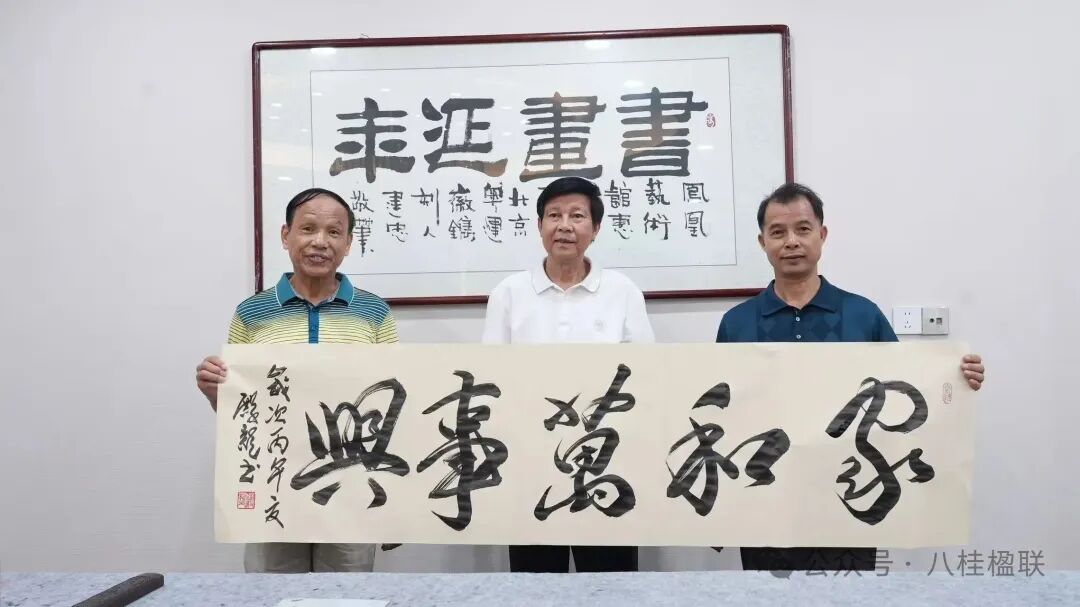 書畫延年
鳳凰
藝術
館惠
北京
奧運
徽鐫
刻人
建忠
敬筆
家和萬事興
歲次丙午夏
殿龍书
公众号 · 八桂楹联